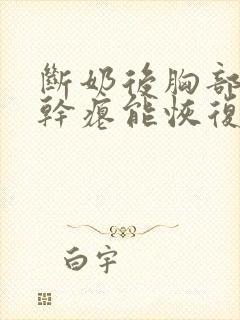 斷奶後胸部
幹癟能恢復
白宇